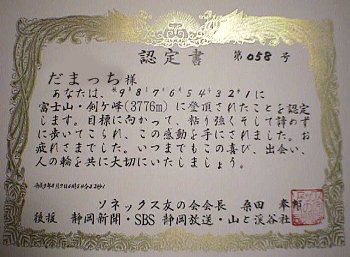 認定書
第058号
だまっち様
あなたは、"9'8'7'6'5'4'3'2'1に
富士山・剣ケ峰(3776m)に登頂されたことを認定
します。目標に向かって、粘り強くそして諦めず
に歩いてこられ、この感動を手にされました。お
疲れさまでした。いつまでもこの喜び、出会い、
人の輪を共に大切にいたしましょう。
ソネックス友の会会長 桑田
後援 静岡新聞・SBS 静岡放送・山と渓谷社